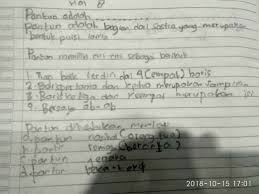 Pantun adalah
Pantun adalah bagian dari sastra yang merupakan
bentuk puisi lama
Pantun memiliki ciri ciri sebagai berikut
1. Tiap bait terdiri dari 4 (empat) baris
2. Baris pertama dan kedua merupakan sampiran
3. Baris ketiga dan keempat merupakan isi
4. Bersajak ab-ab
Pantun dibedakan menjadi
pantun nasihat (orang tua)
pantun
pantun jenaka
pantun
2018-10-15 17:01